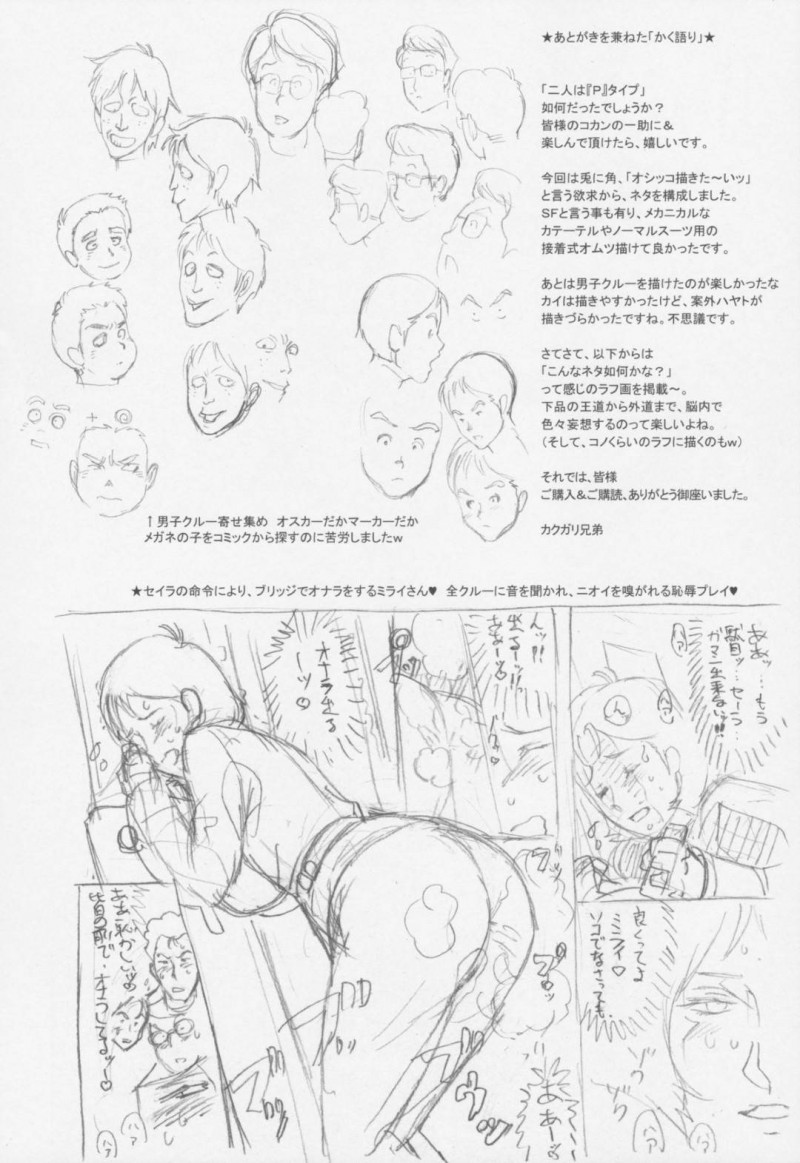 ★あとがきを兼ねた「かく語り」★
「二人は『P』タイプ」
如何だったでしょうか？
皆様のコカンの一助に＆
楽しんで頂けたら、嬉しいです。
今回は兎に角、「オシッコ描きた～いッ」
と言う欲求から、ネタを構成しました。
SFと言う事も有り、メカニカルな
カテーテルやノーマルスーツ用の
接着式オムツ描けて良かったです。
あとは男子クルーを描けたのが楽しかったな
カイは描きやすかったけど、案外ハヤトが
描きづらかったですね。不思議です。
さてさて、以下からは
「こんなネタ如何かな？」
って感じのラフ画を掲載～。
下品の王道から外道まで、脳内で
色々妄想するのって楽しいよね。
（そして、コノくらいのラフに描くのもw）
それでは、皆様
ご購入＆ご購読、ありがとう御座いました。
カクガリ兄弟
↑男子クルー寄せ集め　オスカーだかマーカーだか
メガネの子をコミックから探すのに苦労しましたw
★セイラの命令により、ブリッジでオナラをするミライさん♥　全クルーに音を聞かれ、ニオイを嗅がれる恥辱プレイ♥
ああッ…もう
駄目ッ…セーラ…
ガマン出来ないッ!!
ハァ
ん
ハァ
んッ!!
出るーッ!!
ああーッ♡
オナラ出る
ーーッ♡
良くってよ
ミライ♡
ソコでなさっても
ゾク
ゾク
ハァ
ハァ
ああ恥かしいッ
皆の前で、オナラしてるッ～♡
ハァ
ハァ
ブロロ
ブロッ
ああー